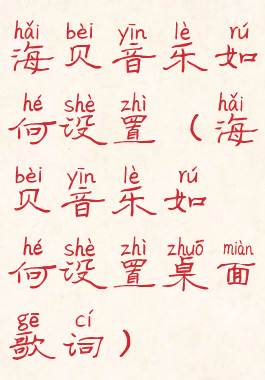 hǎi bèi yīn lè rú
海贝音乐如
hé shè zhì hǎi
何设置（海
bèi yīn lè rú
贝音乐如
hé shè zhì zhuō miàn
何设置桌面
gē cí
歌词）